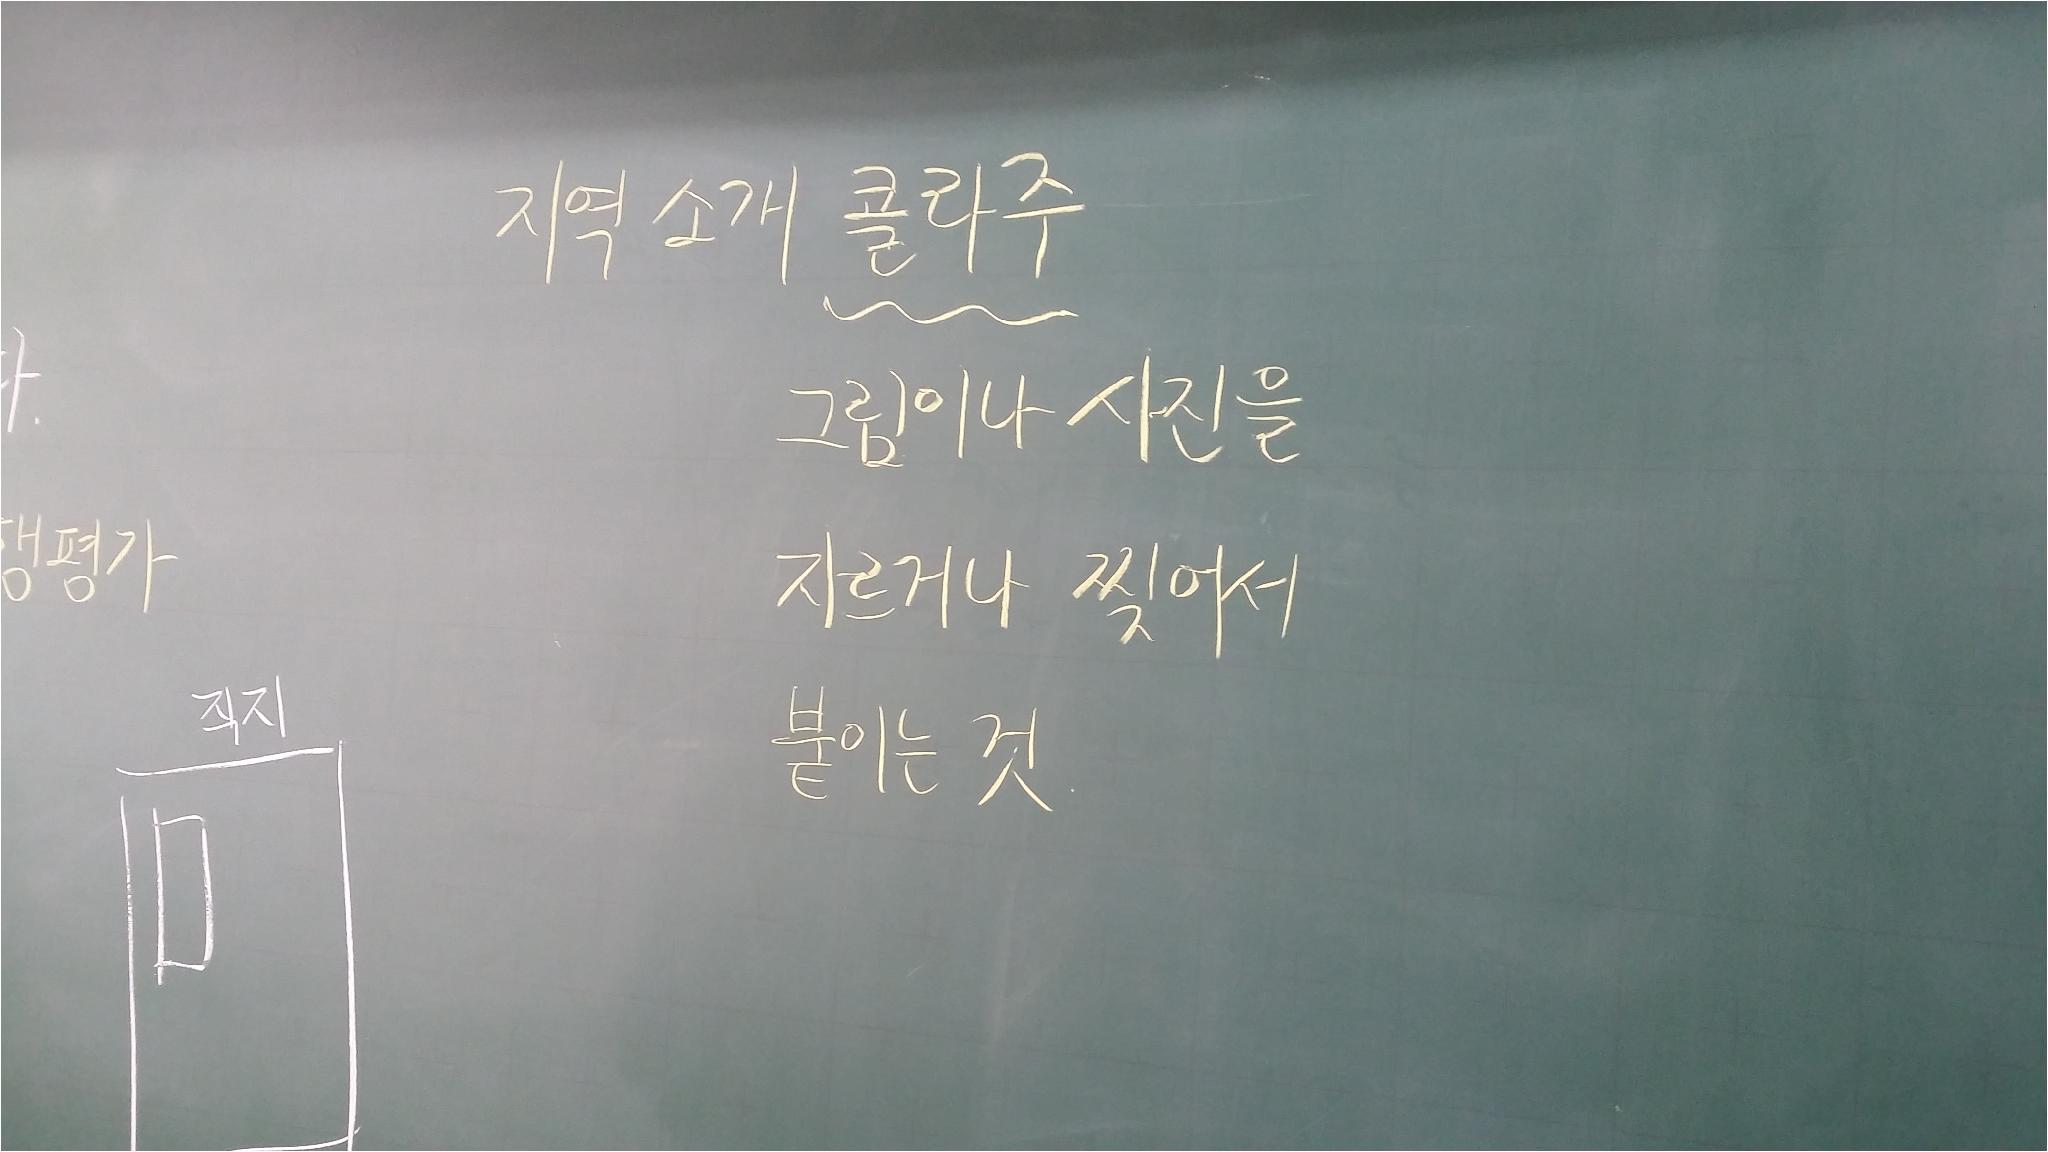 지역 소개 콜라주
그림이나 사진을
자르거나 찢어서
붙이는 것.
다.
행평가
직지